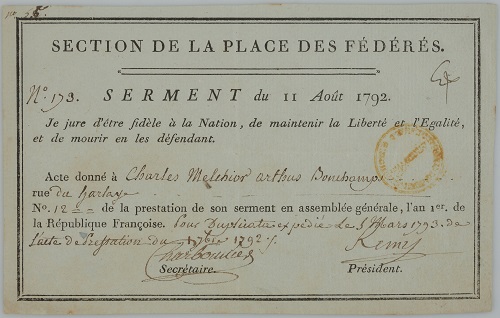 SECTION DE LA PLACE DES FÉDÉRÉS.
N.º 173. SERMENT du 11 Août 1792.
Je jure d'être fidèle à la Nation, de maintenir la Liberté et l'Egalité,
et de mourir en les défendant.
Acte donné à Charles Melchior arthus Bonchamps
rue du harlay
No. 12 de la prestation de son serment en assemblée générale, l'an 1er. de
la République Françoise. Pour Duplicata expédié le 5 Mars 1793. de
l'acte de Prestation du 17 1792
Remy
Secrétaire. Président.